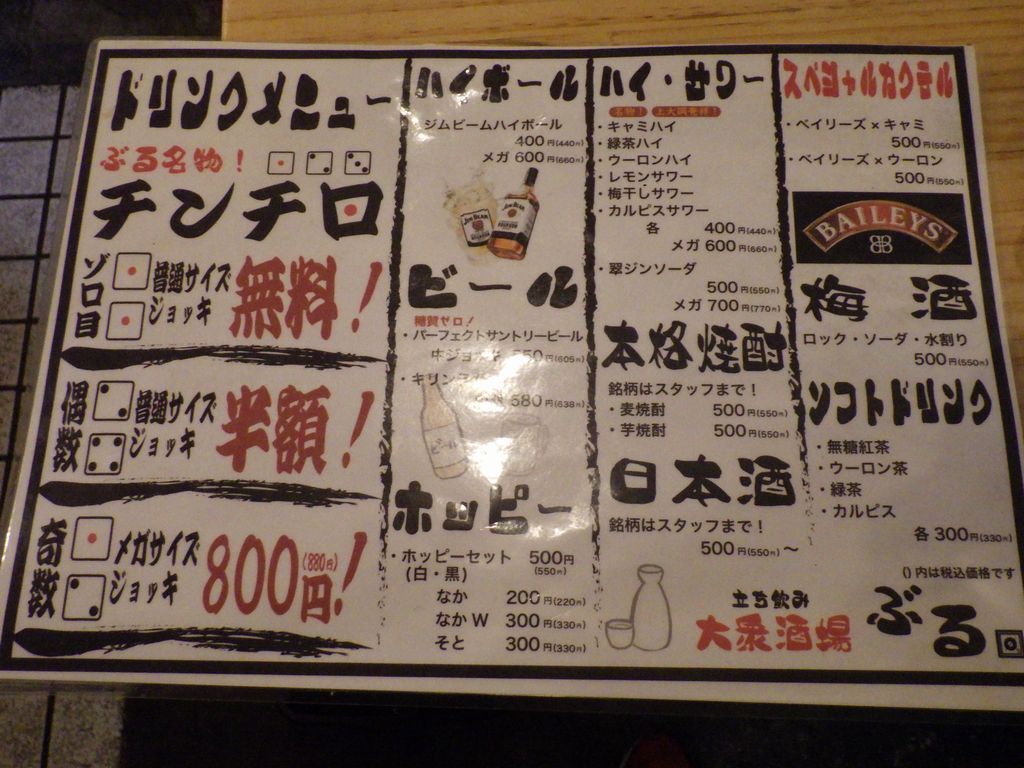 ドリンクメニュー
ぶる名物！
チンチロ
ゾロ目
普通サイズ
ジョッキ
無料！
偶数
普通サイズ
ジョッキ
半額！
奇数
メガサイズ
ジョッキ
800円！
(880円)
ハイボール
ジムビームハイボール
400円(440円)
メガ 600円(660円)
JIM BEAM
JIM BEAM
ビール
糖質ゼロ！
・パーフェクトサントリービール
(605円)
・キリン
580円(638円)
ビール
ホッピー
・ホッピーセット 500円
(白・黒) (550円)
なか 200円(220円)
なか W 300円(330円)
そと 300円(330円)
ハイ・サワー
名物！
・キャミハイ
・緑茶ハイ
・ウーロンハイ
・レモンサワー
・梅干しサワー
・カルピスサワー
各 400円(440円)
メガ 600円(660円)
・翠ジンソーダ
500円(550円)
メガ 700円(770円)
本格焼酎
銘柄はスタッフまで！
・麦焼酎 500円(550円)
・芋焼酎 500円(550円)
日本酒
銘柄はスタッフまで！
500円(550円)〜
スペシャルカクテル
・ベイリーズ×キャミ
500円(550円)
・ベイリーズ×ウーロン
500円(550円)
BAILEYS
梅酒
ロック・ソーダ・水割り
500円(550円)
ソフトドリンク
・無糖紅茶
・ウーロン茶
・緑茶
・カルピス
各 300円(330円)
()内は税込価格です
立ち飲み
大衆酒場
ぶる